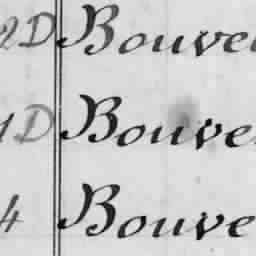 2D Bouve
1D Bouve
4 Bouve